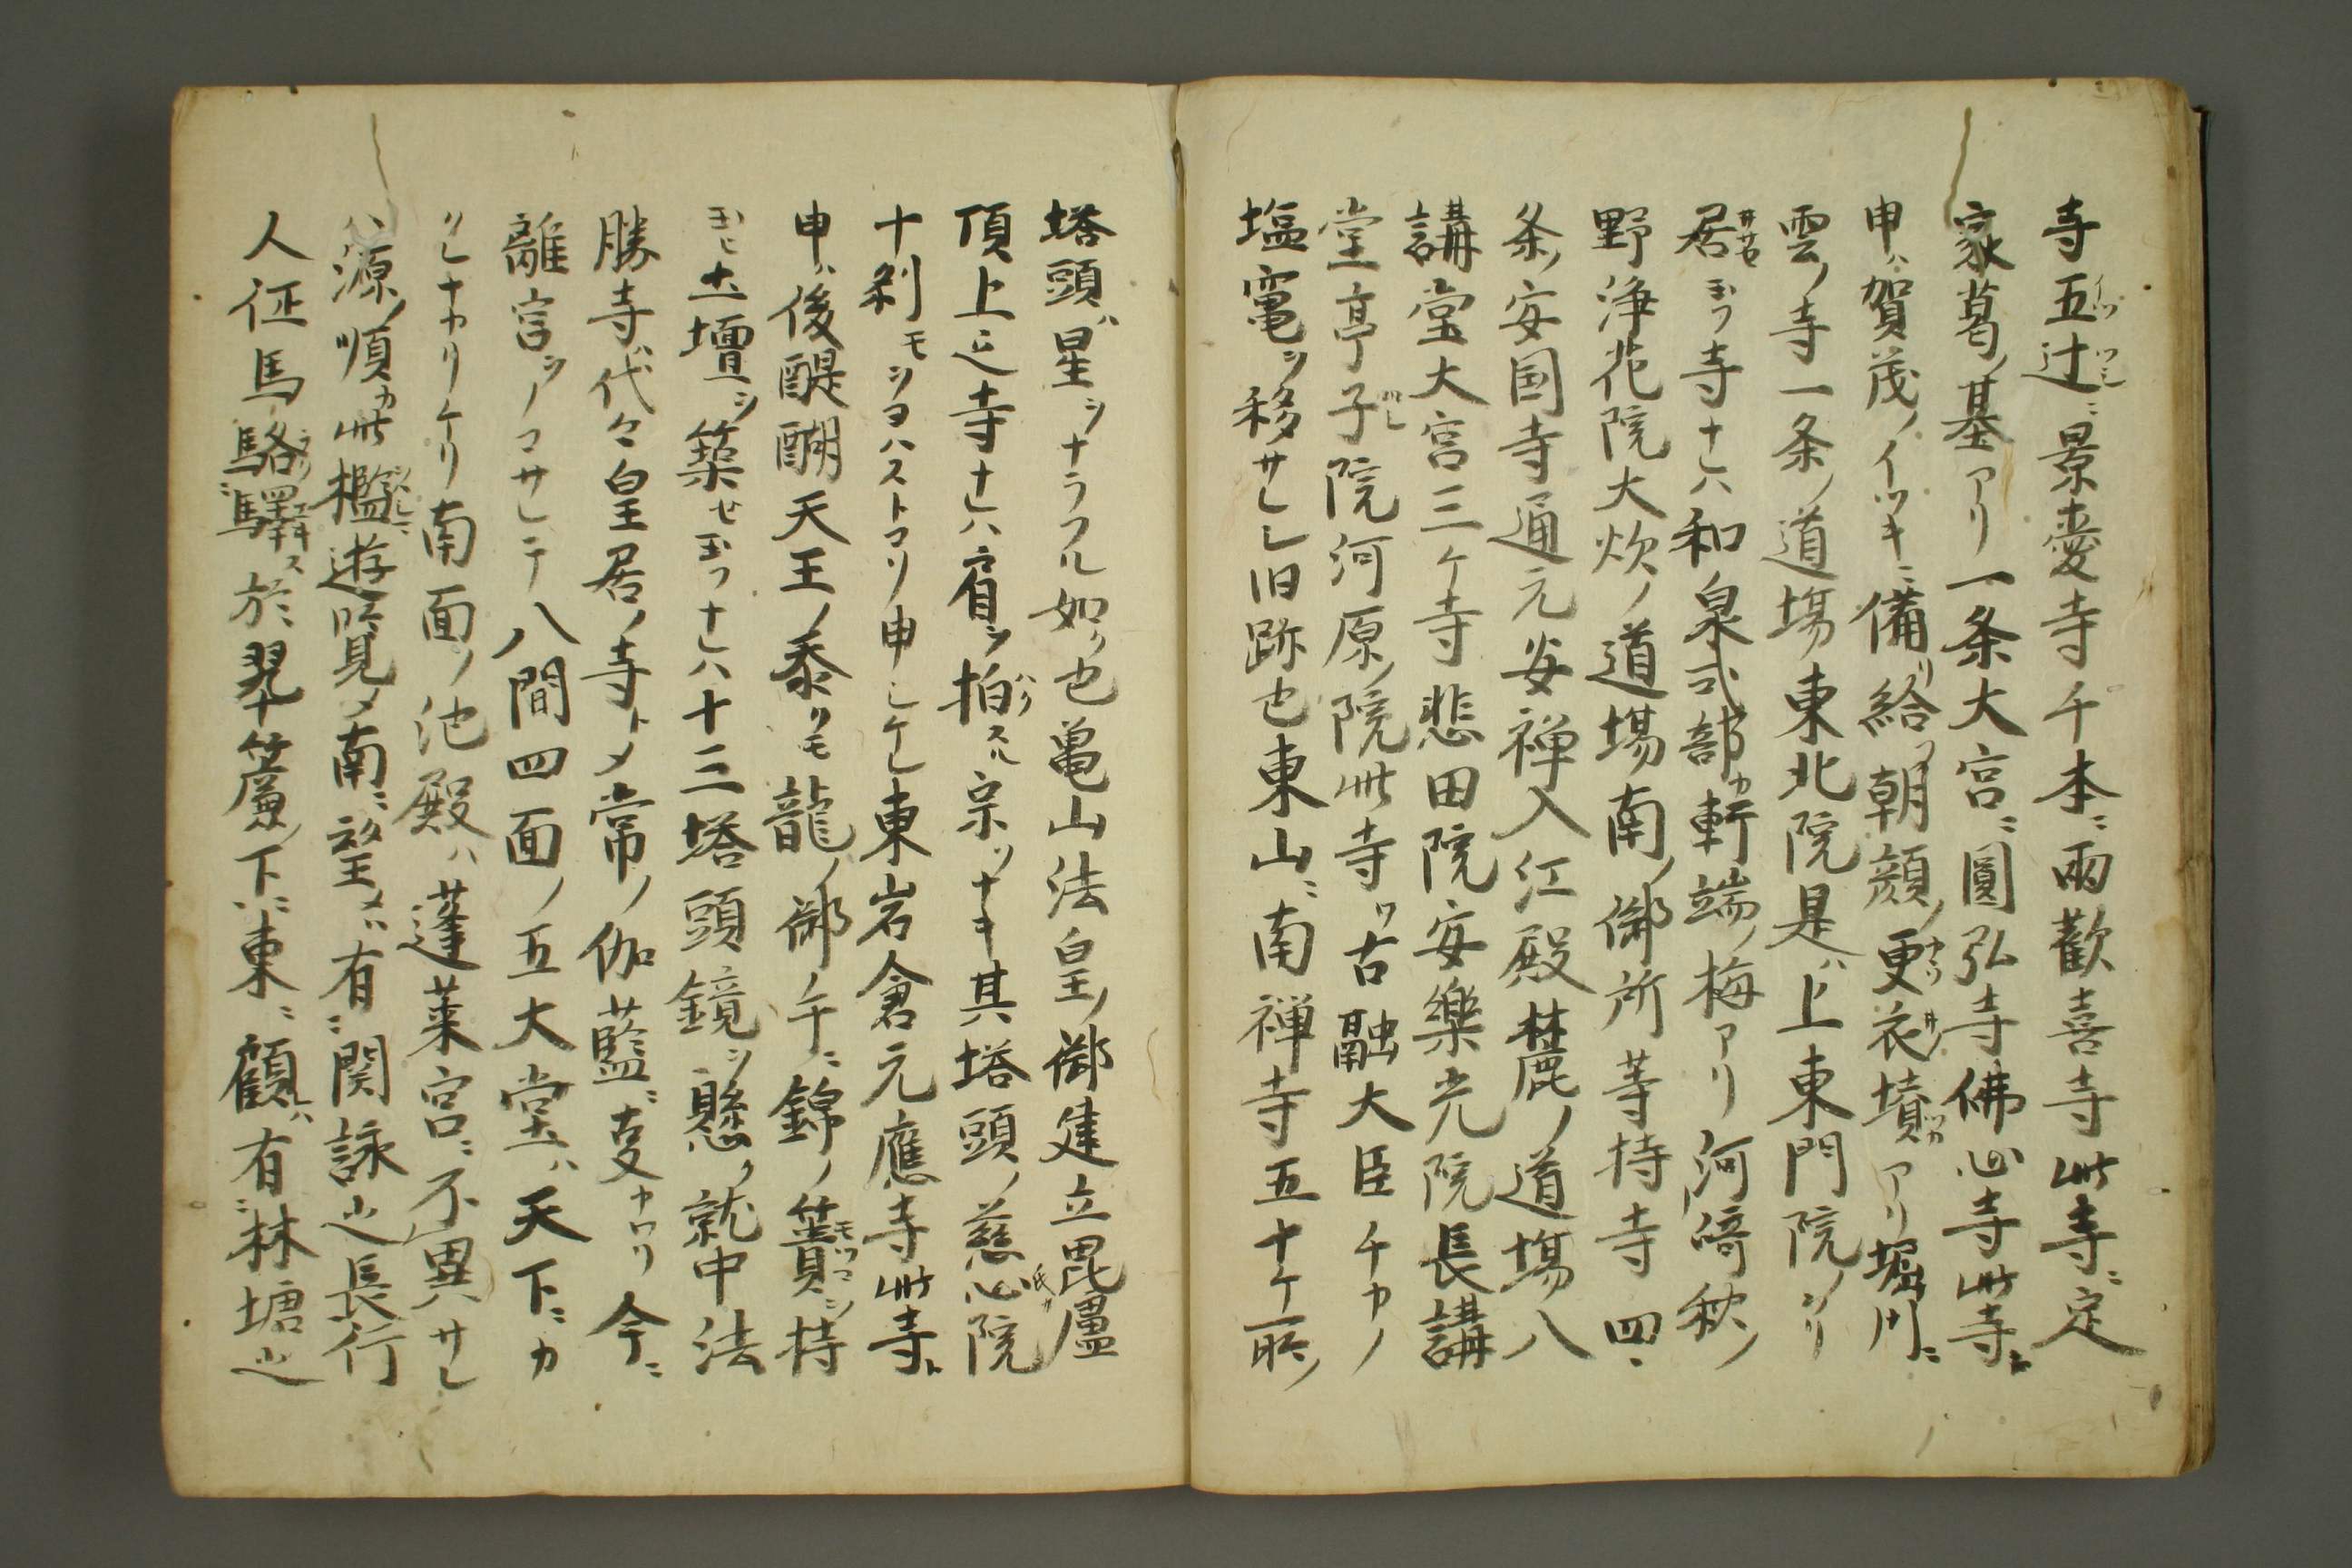 寺五辻ニ景愛寺千本ニ両歓喜寺此寺ニ定
家葛ノ基アリ一条大宮ニ圓弘寺佛心寺此寺ト
申ハ賀茂ノイツキニ備リ給フ朝顔ノ更衣ノ墳アリ堀川ニ
雲ノ寺一条ノ道場東北院是ハ上東門院ノヲリ
居玉フ寺ナレハ和泉式部カ軒端ノ梅アリ河﨑秋ノ
野浄花院大炊ノ道場南ノ御所等持寺四ニ
条ノ安国寺通元安禅入江殿麓ノ道場八
講堂大宮三ケ寺悲田院安樂光院長講
堂亭子院河原ノ院此寺ワ古融大臣チカノ
塩竃ヲ移サレシ旧跡也東山ニ南禅寺五十ケ所ノ
塔頭ハ星ヲナラフル如リ也亀山法皇ノ御建立毘盧
頂上之寺ナレハ肩ヲ拍スル宗ソナキ其塔頭ノ慈心院
十刹モヲヨハストソ申シケレ東岩倉元應寺此寺ト
申ハ後醍醐天王ノ忝リモ龍ノ御手ニ錦ノ簣ヲ持
玉ヒ土壇ヲ築セ玉フナレハ十三塔頭鏡ヲ懸ク就中法
勝寺代々皇居ノ寺トメ常ノ伽藍ニ支カワリ今ニ
離宮ヲノコサレテ八間四面ノ五大堂ハ天下ニカ
クレナカリケリ南面ノ池殿ハ蓬莱宮ニ不異サレ
ハ源ノ順カ此檻ニ遊覧メ南ニ望メハ有ニ関詠之長行
人征馬駱驛ス於ニ翠簾ノ下ニ東ニ顧レハ有ニ林塘之